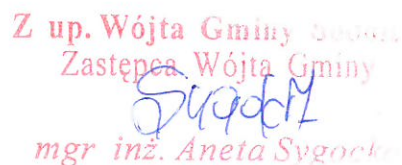 Z up. Wójta Gminy
Zastępca Wójta Gminy
mgr inż. Aneta Sygocka